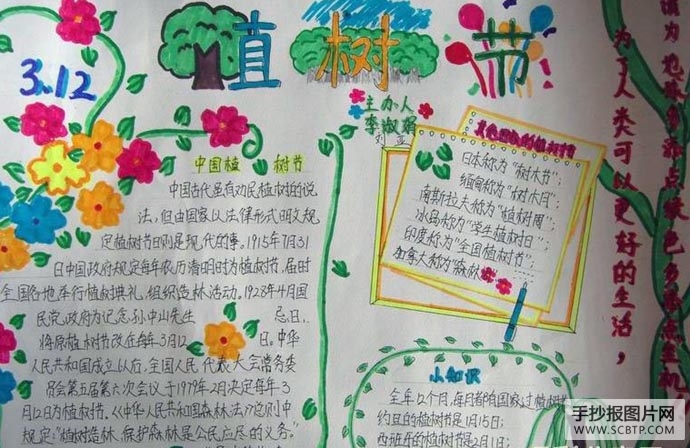 3.12
植树节
主办人
李淑娟
中国植 树节
中国古代虽有劝民植树的说
法,但由国家以法律形式明文规
定植树节日则是现代的事。1915年7月31
日中国政府规定每年农历清明时为植树节,届时
全国各地举行植树典礼,组织造林活动。1928年4月国
民党政府为记念孙中山先生 忌日,
将原植树节改在每年3月12 日。中华
人民共和国成立以后,全国人民代表大会常务委
员会第五届第六次会议于1979年2月决定每年3
月12日为植树节。《中华人民共和国森林法》总则中
规定:"植树造林、保护森林是公民应尽的义务。"
的植树节
日本称为"树木节";
缅甸称为"树木月";
南斯拉夫称为"植树周";
冰岛称为"学生植树日";
印度称为"全国植树节";
加拿大称为"森林
小知识
全年12个月,每月都有国家过植树节
约旦的植树节是1月15日;
西班牙的植树节是2月1日;
请为地球多添点绿色多
为了人类可以更好的生活,
手抄报图片网
WWW.SCBTP.COM